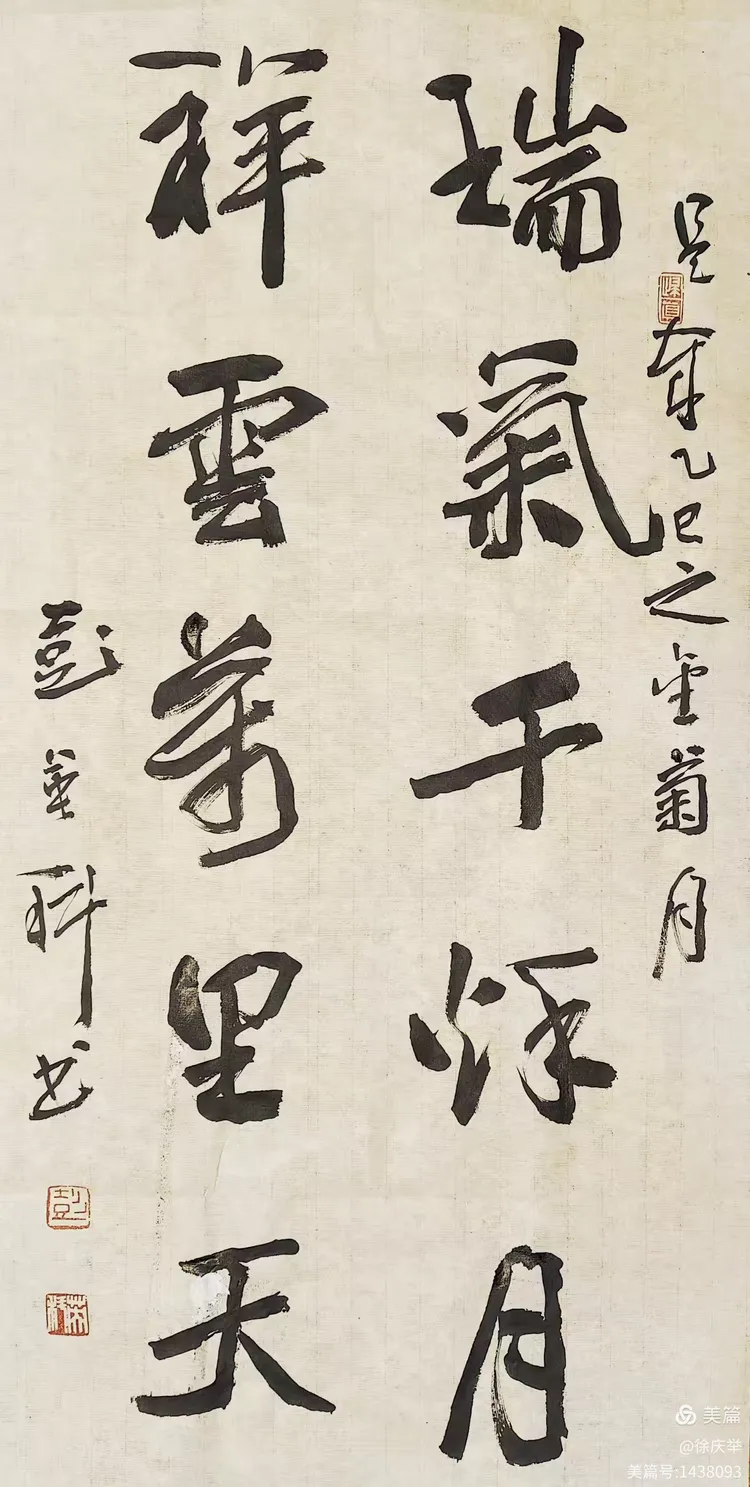 是年乙巳之金菊月
瑞氣千秌月
祥雲萬里天
彭科书
彭
美篇
@徐庆举
美篇号:1438093